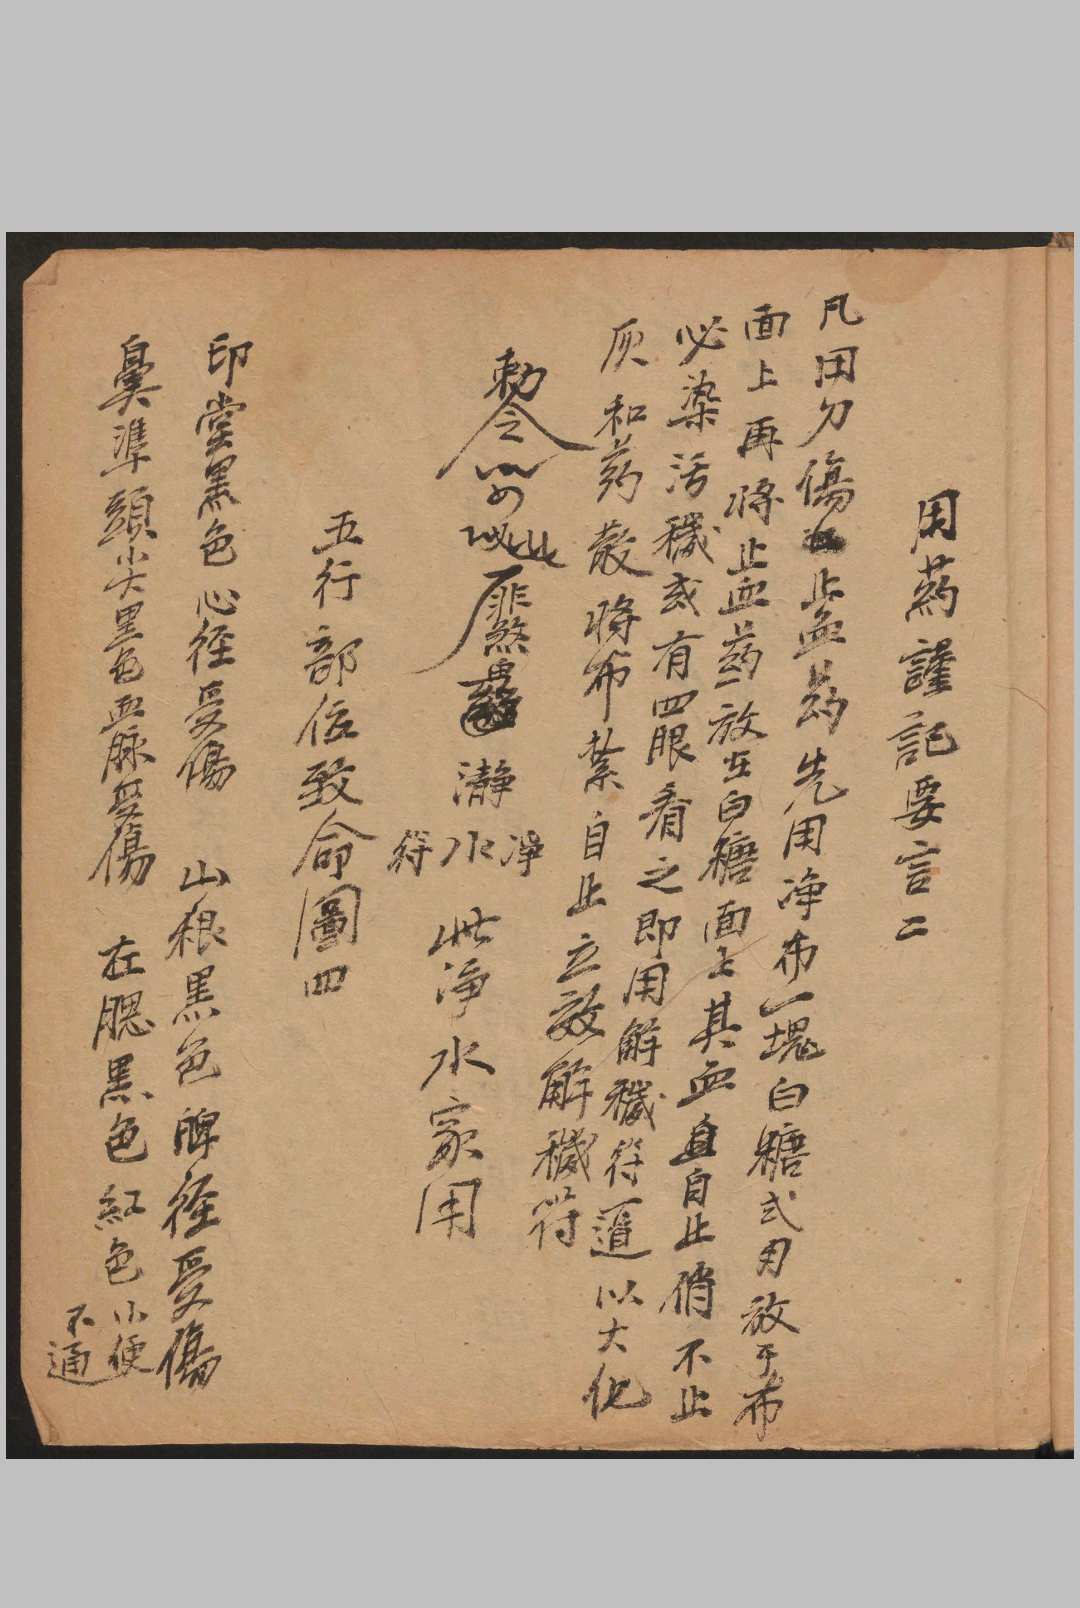 用葯謹記要言二
凡用刀傷止盁葯先用净布一塊白糖式刃放于布
面上再将止血葯放在白糖面上其血自自止俏不止
必染污穢或有四眼看之即用解穢符道以大化
灰和药散将布紮自止立效解穢符
勅令 瀞
净水符
此净水家用
五行部位致命圖四
印堂黑色心徑受傷 山根黑色脾徑受傷
鼻準頭尖黑色血脉受傷 在腮黑色紅色小便不通